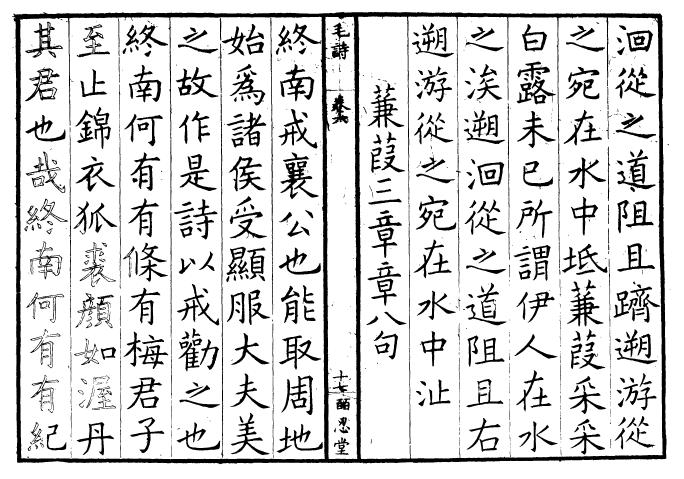 洄從之道阻且躋遡游從
之宛在水中坻蒹葭采采
白露未已所謂伊人在水
之涘遡洄從之道阻且右
遡游從之宛在水中沚
蒹葭三章章八句
毛詩
卷六
十七
酌思堂
終南戒襄公也能取周地
始為諸侯受顯服大夫美
之故作是詩以戒勸之也
終南何有有條有梅君子
至止錦衣狐裘顏如渥丹
其君也哉終南何有有紀